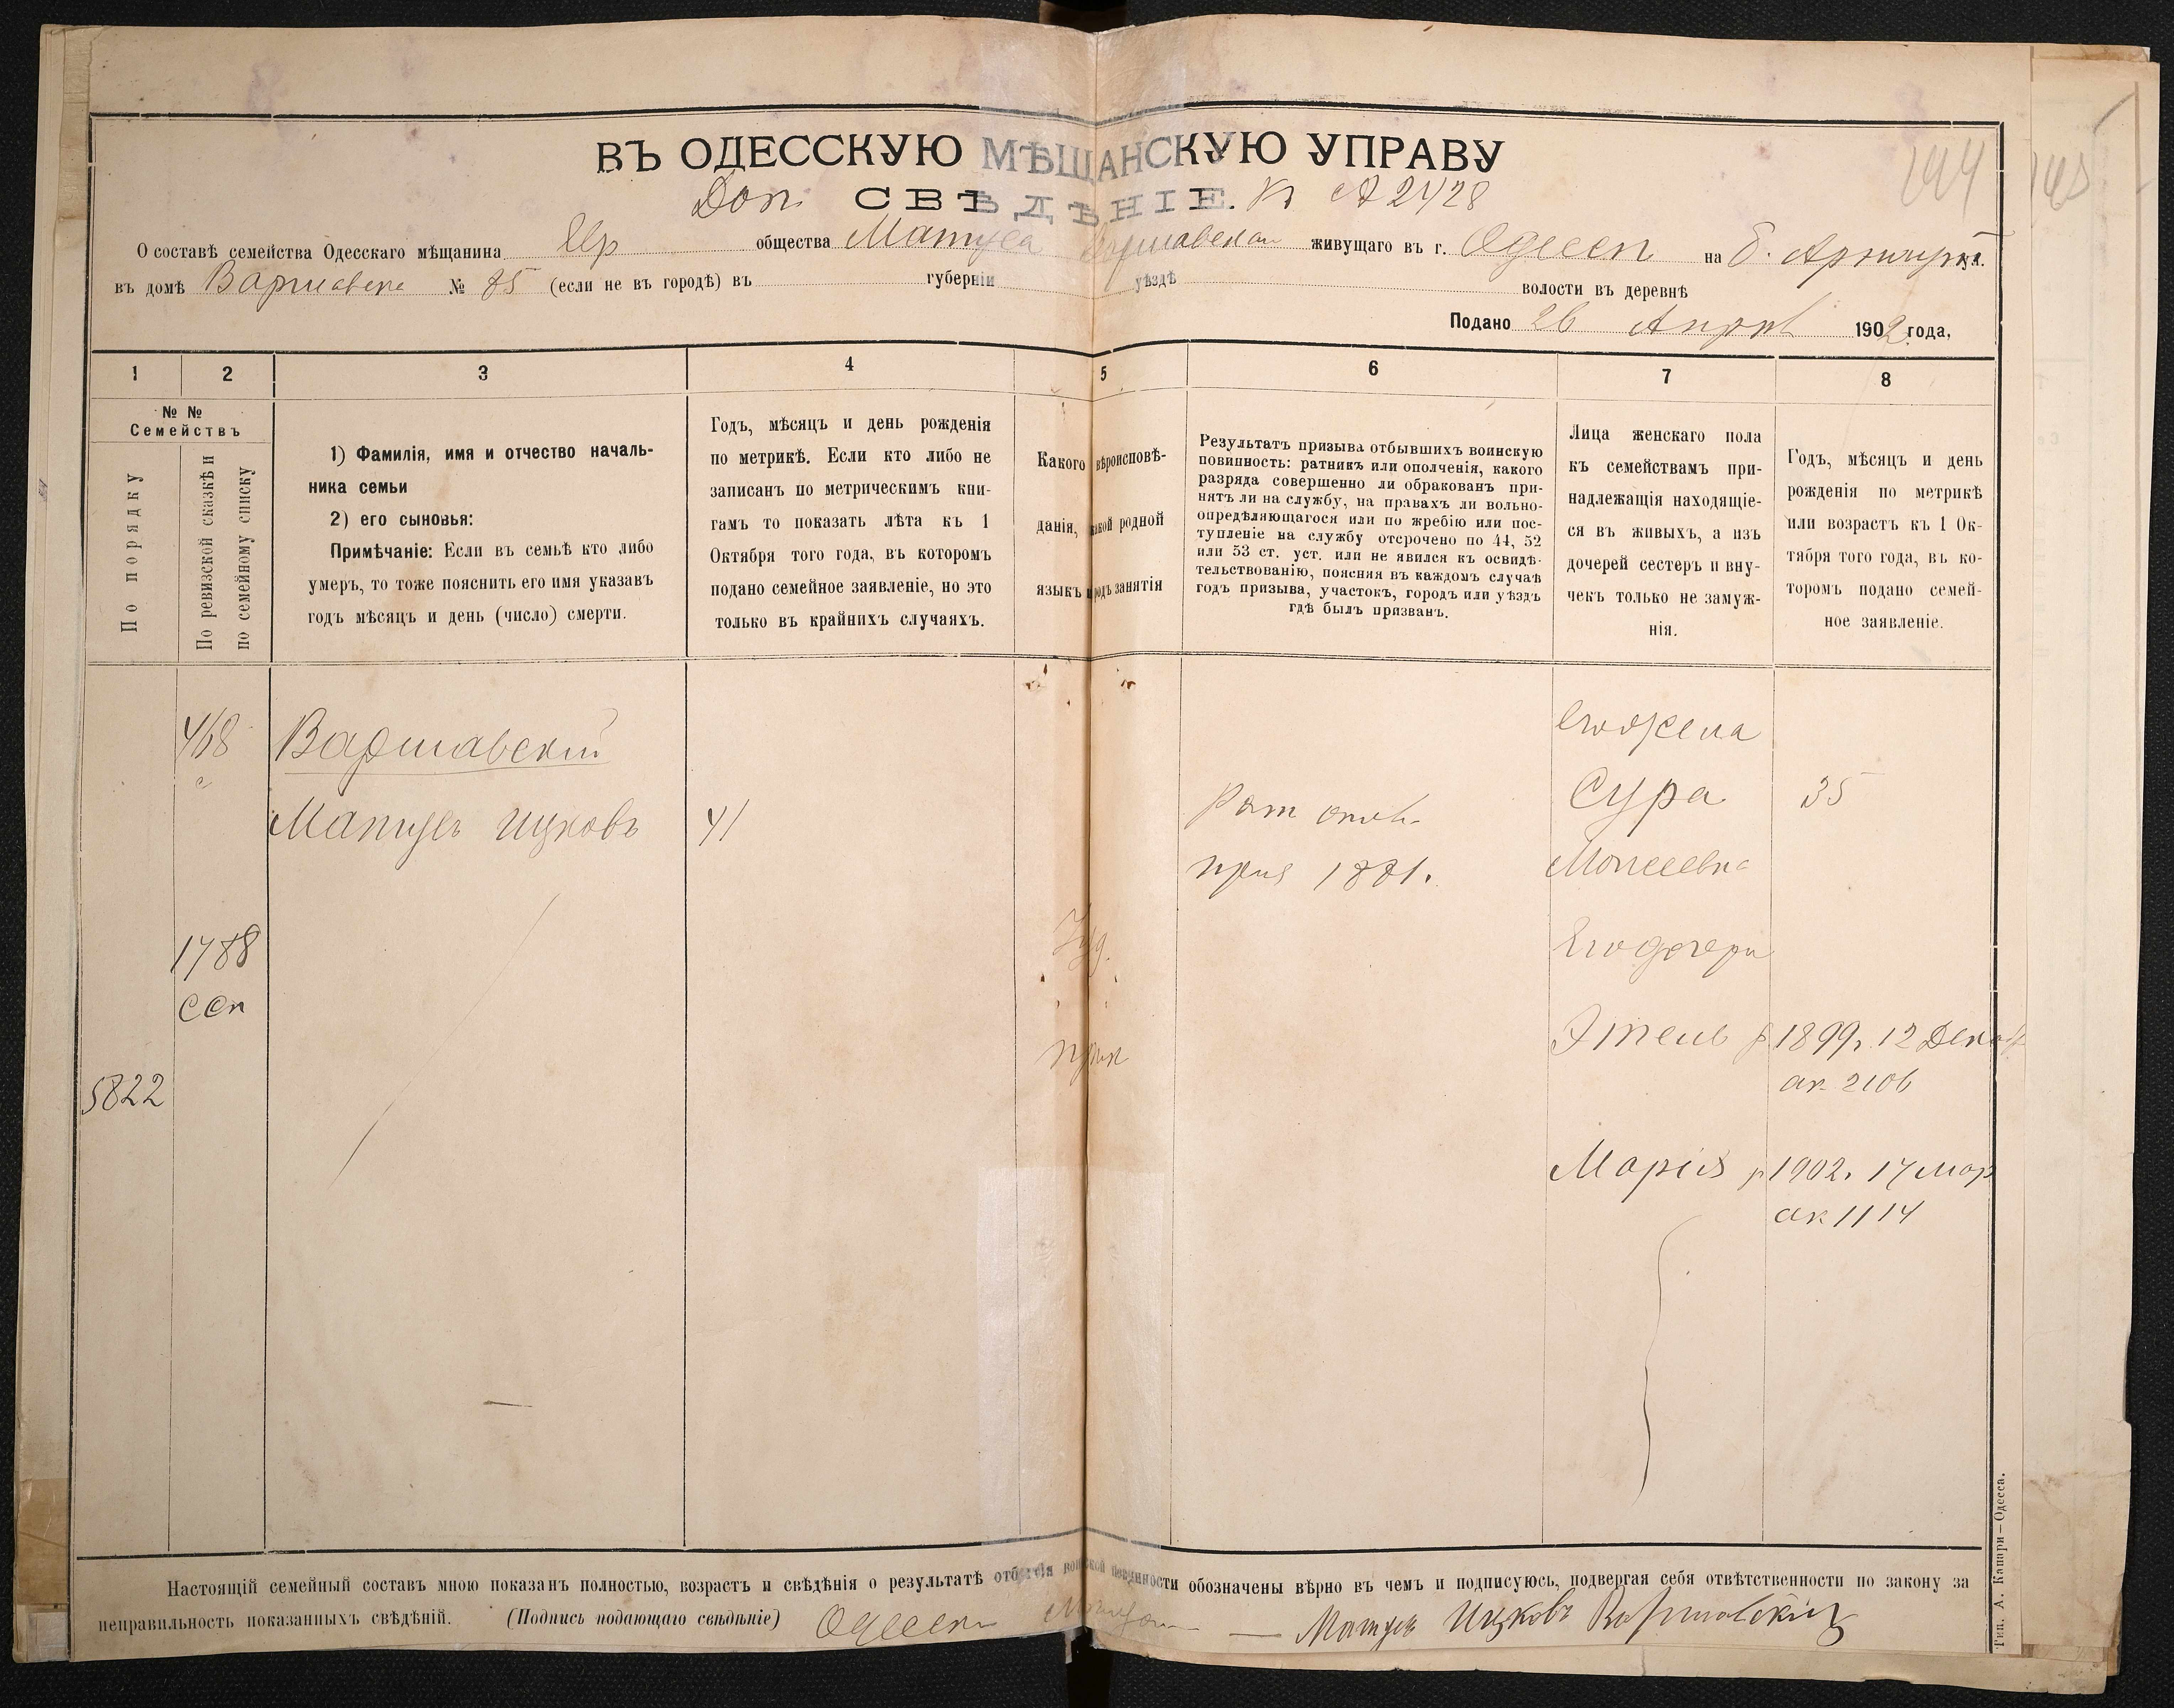 ВЪ ОДЕССКУЮ МѢЩАНСКУЮ УПРАВУ
Доп. СВѢДѢНІЕ. К А 2428
144 145
О составѣ семейства Одесскаго мѣщанина Евр общества Матуса Варшавскаго живущаго въ г. Одессѣ на Б. Арнаутс. ул.
въ домѣ Варшавска № 85 (если не въ городѣ) въ губерніи уѣздѣ волости въ деревнѣ
Подано 26 Апрѣл 1902 года,
1 2 3 4 5 6 7 8
№ №
Семействъ
По порядку
По ревизской сказкѣ и
по семейному списку
1) Фамилія, имя и отчество началь-
ника семьи
2) его сыновья:
Примѣчаніе: Если въ семьѣ кто либо
умеръ, то тоже пояснить его имя указавъ
годъ мѣсяцъ и день (число) смерти.
Годъ, мѣсяцъ и день рожденія
по метрикѣ. Если кто либо не
записанъ по метрическимъ кни-
гамъ то показать лѣта къ 1
Октября того года, въ которомъ
подано семейное заявленіе, но это
только въ крайнихъ случаяхъ.
Какого вѣроисповѣ-
данія, какой родной
языкъ и родъ занятія
Результатъ призыва отбывшихъ воинскую
повинность: ратникъ или ополченія, какого
разряда совершенно ли обракованъ при-
нятъ ли на службу, на правахъ ли вольно-
опредѣляющагося или по жребію или пос-
тупленіе на службу отсрочено по 44, 52
или 53 ст. уст. или не явился къ освидѣ-
тельствованію, поясняя въ каждомъ случаѣ
годъ призыва, участокъ, городъ или уѣздъ
гдѣ былъ призванъ.
Лица женскаго пола
къ семействамъ при-
надлежащія находящіе-
ся въ живыхъ, а изъ
дочерей сестеръ и вну-
чекъ только не замуж-
нія.
Годъ, мѣсяцъ и день
рожденія по метрикѣ
или возрастъ къ 1 Ок-
тября того года, въ ко-
торомъ подано семей-
ное заявленіе.
468 Варшавскій
Матусъ Ицковъ 41
Рат опол.
приз 1881.
его жена
Сура 35
Моисеевна
1788
Іуд.
Его дочери
Этель р 1899г. 12 Декаб
ак 2106
5822
Марія р 1902г. 17 Мар
ак 1114
Настоящій семейный составъ мною показанъ полностью, возрастъ и свѣдѣнія о результатѣ отбытія воинской повинности обозначены вѣрно въ чемъ и подписуюсь, подвергая себя отвѣтственности по закону за
неправильность показанныхъ свѣдѣній. (Подпись подающаго свѣдѣніе) Одесскій Мѣщан — Матусъ Ицковъ Варшавскій
Тип. А. Капари—Одесса.